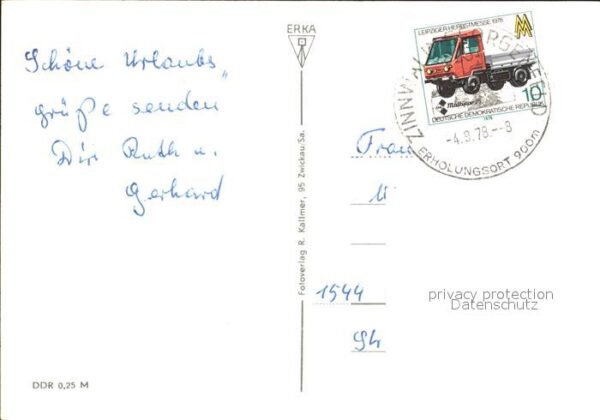 Schöne Urlaubs„
grüße senden
Dir Ruth u.
Gerhard
DDR 0,25 M
ERKA
Fotoverlag R. Kallmer, 95 Zwickau/Sa.
LEIPZIGER HERBSTMESSE 1978
MM
10
DEUTSCHE DEMOKRATISCHE REPUBLIK
1978
-4.9.78.--8
ERHOLUNGSORT 900m
Frau
1544
privacy protection
Datenschutz